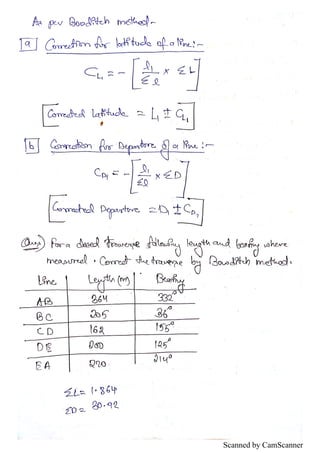 As per Bowditch method-
[a] Correction for latitude of a line:-
C_L1 = - [ l1/Σl × ΣL ]
[Corrected Latitude = L1 ± C_L1]
[b] Correction for Departure of a line:-
C_D1 = - [ l1/Σl × ΣD ]
[Corrected Departure = D1 ± C_D1]
(Ques) For a closed traverse following length and bearing where
measured. Correct the traverse by Bowditch method.
Line Length (m) Bearing
AB 264 332°
BC 205 36°
CD 162 155°
DE 200 125°
EA 270 214°
ΣL = 1.864
ΣD = 30.92
Scanned by CamScanner